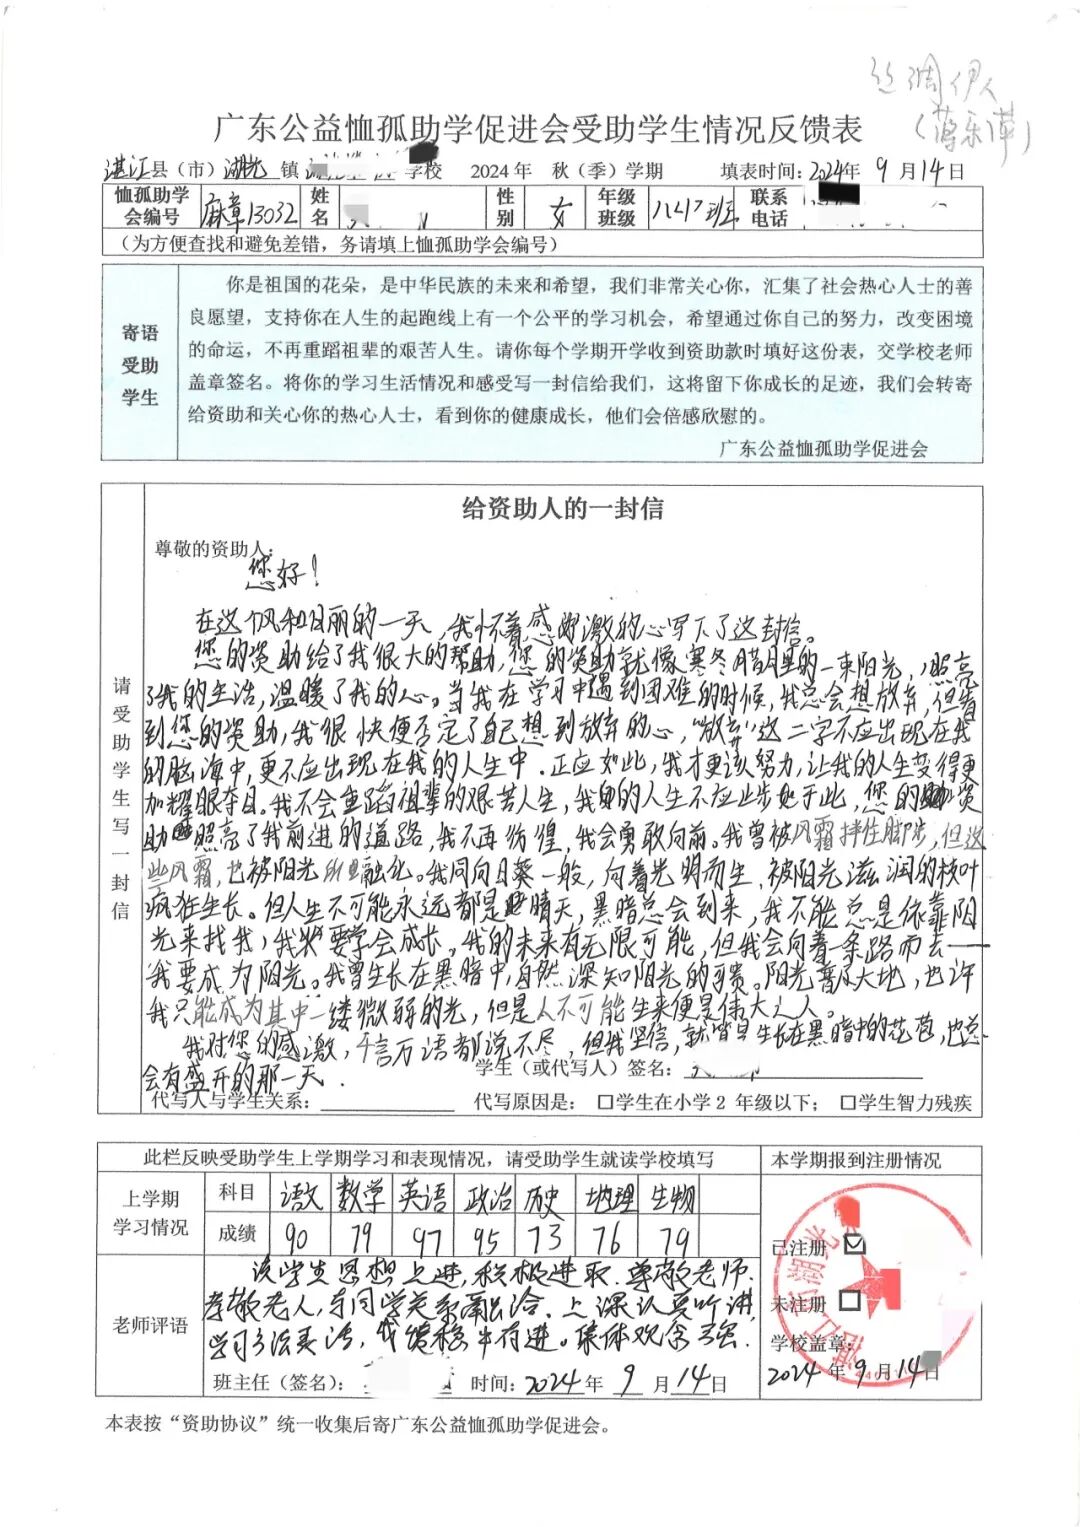 丝调伊人
广东公益恤孤助学促进会受助学生情况反馈表
湛江县（市）湖光镇 学校 2024年 秋（季）学期 填表时间：2024年9月14日
恤孤助学会编号 麻章13032 姓名 性别 女 年级班级 八(4)班 联系电话
（为方便查找和避免差错，务请填上恤孤助学会编号）
寄语受助学生
你是祖国的花朵，是中华民族的未来和希望，我们非常关心你，汇集了社会热心人士的善
良愿望，支持你在人生的起跑线上有一个公平的学习机会，希望通过你自己的努力，改变困境
的命运，不再重蹈祖辈的艰苦人生。请你每个学期开学收到资助款时填好这份表，交学校老师
盖章签名。将你的学习生活情况和感受写一封信给我们，这将留下你成长的足迹，我们会转寄
给资助和关心你的热心人士，看到你的健康成长，他们会倍感欣慰的。
广东公益恤孤助学促进会
请受助学生写一封信
给资助人的一封信
尊敬的资助人：
您好！
在这个风和日丽的一天，我怀着感激的心写下了这封信。
您的资助给了我很大的帮助，您的资助就像寒冬腊月里的一束阳光，照亮
了我的生活，温暖了我的心。当我在学习中遇到困难的时候，我总会想放弃，但看
到您的资助，我很快便否定了自己想到放弃的心，“放弃”这二字不应出现在我
的脑海中，更不应出现在我的人生中．正应如此，我才更该努力，让我的人生变得更
加耀眼夺目。我不会重蹈祖辈的艰苦人生，我的人生不应止步于此，您的资
助照亮了我前进的道路，我不再彷徨，我会勇敢向前。我曾被风霜拌住脚步，但这
些风霜，也被阳光所融化。我同向日葵一般，向着光明而生，被阳光滋润的枝叶
疯狂生长。但人生不可能永远都是晴天，黑暗总会到来，我不能总是依靠阳
光来找我，我要学会成长。我的未来有无限可能，但我会向着一条路而去——
我要成为阳光。我曾生长在黑暗中，自然深知阳光的可贵。阳光普及大地，也许
我只能成为其中一缕微弱的光，但是人不可能生来便是伟大之人。
我对您的感激，千言万语都说不尽，但我坚信，就算是生长在黑暗中的花苞，也总
会有盛开的那一天．
学生（或代写人）签名：
代写人与学生关系： 代写原因是：□学生在小学2年级以下；□学生智力残疾
此栏反映受助学生上学期学习和表现情况，请受助学生就读学校填写 本学期报到注册情况
上学期学习情况 科目 语文 数学 英语 政治 历史 地理 生物
成绩 90 79 97 95 73 76 79
老师评语
该学生思想上进，积极进取、尊敬老师、
孝敬老人，与同学关系融洽、上课认真听讲，
学习方法灵活，成绩稳中有进。集体观念强．
班主任（签名）： 时间：2024年9月14日
已注册☑
未注册□
学校盖章：
2024年9月14日
本表按“资助协议”统一收集后寄广东公益恤孤助学促进会。